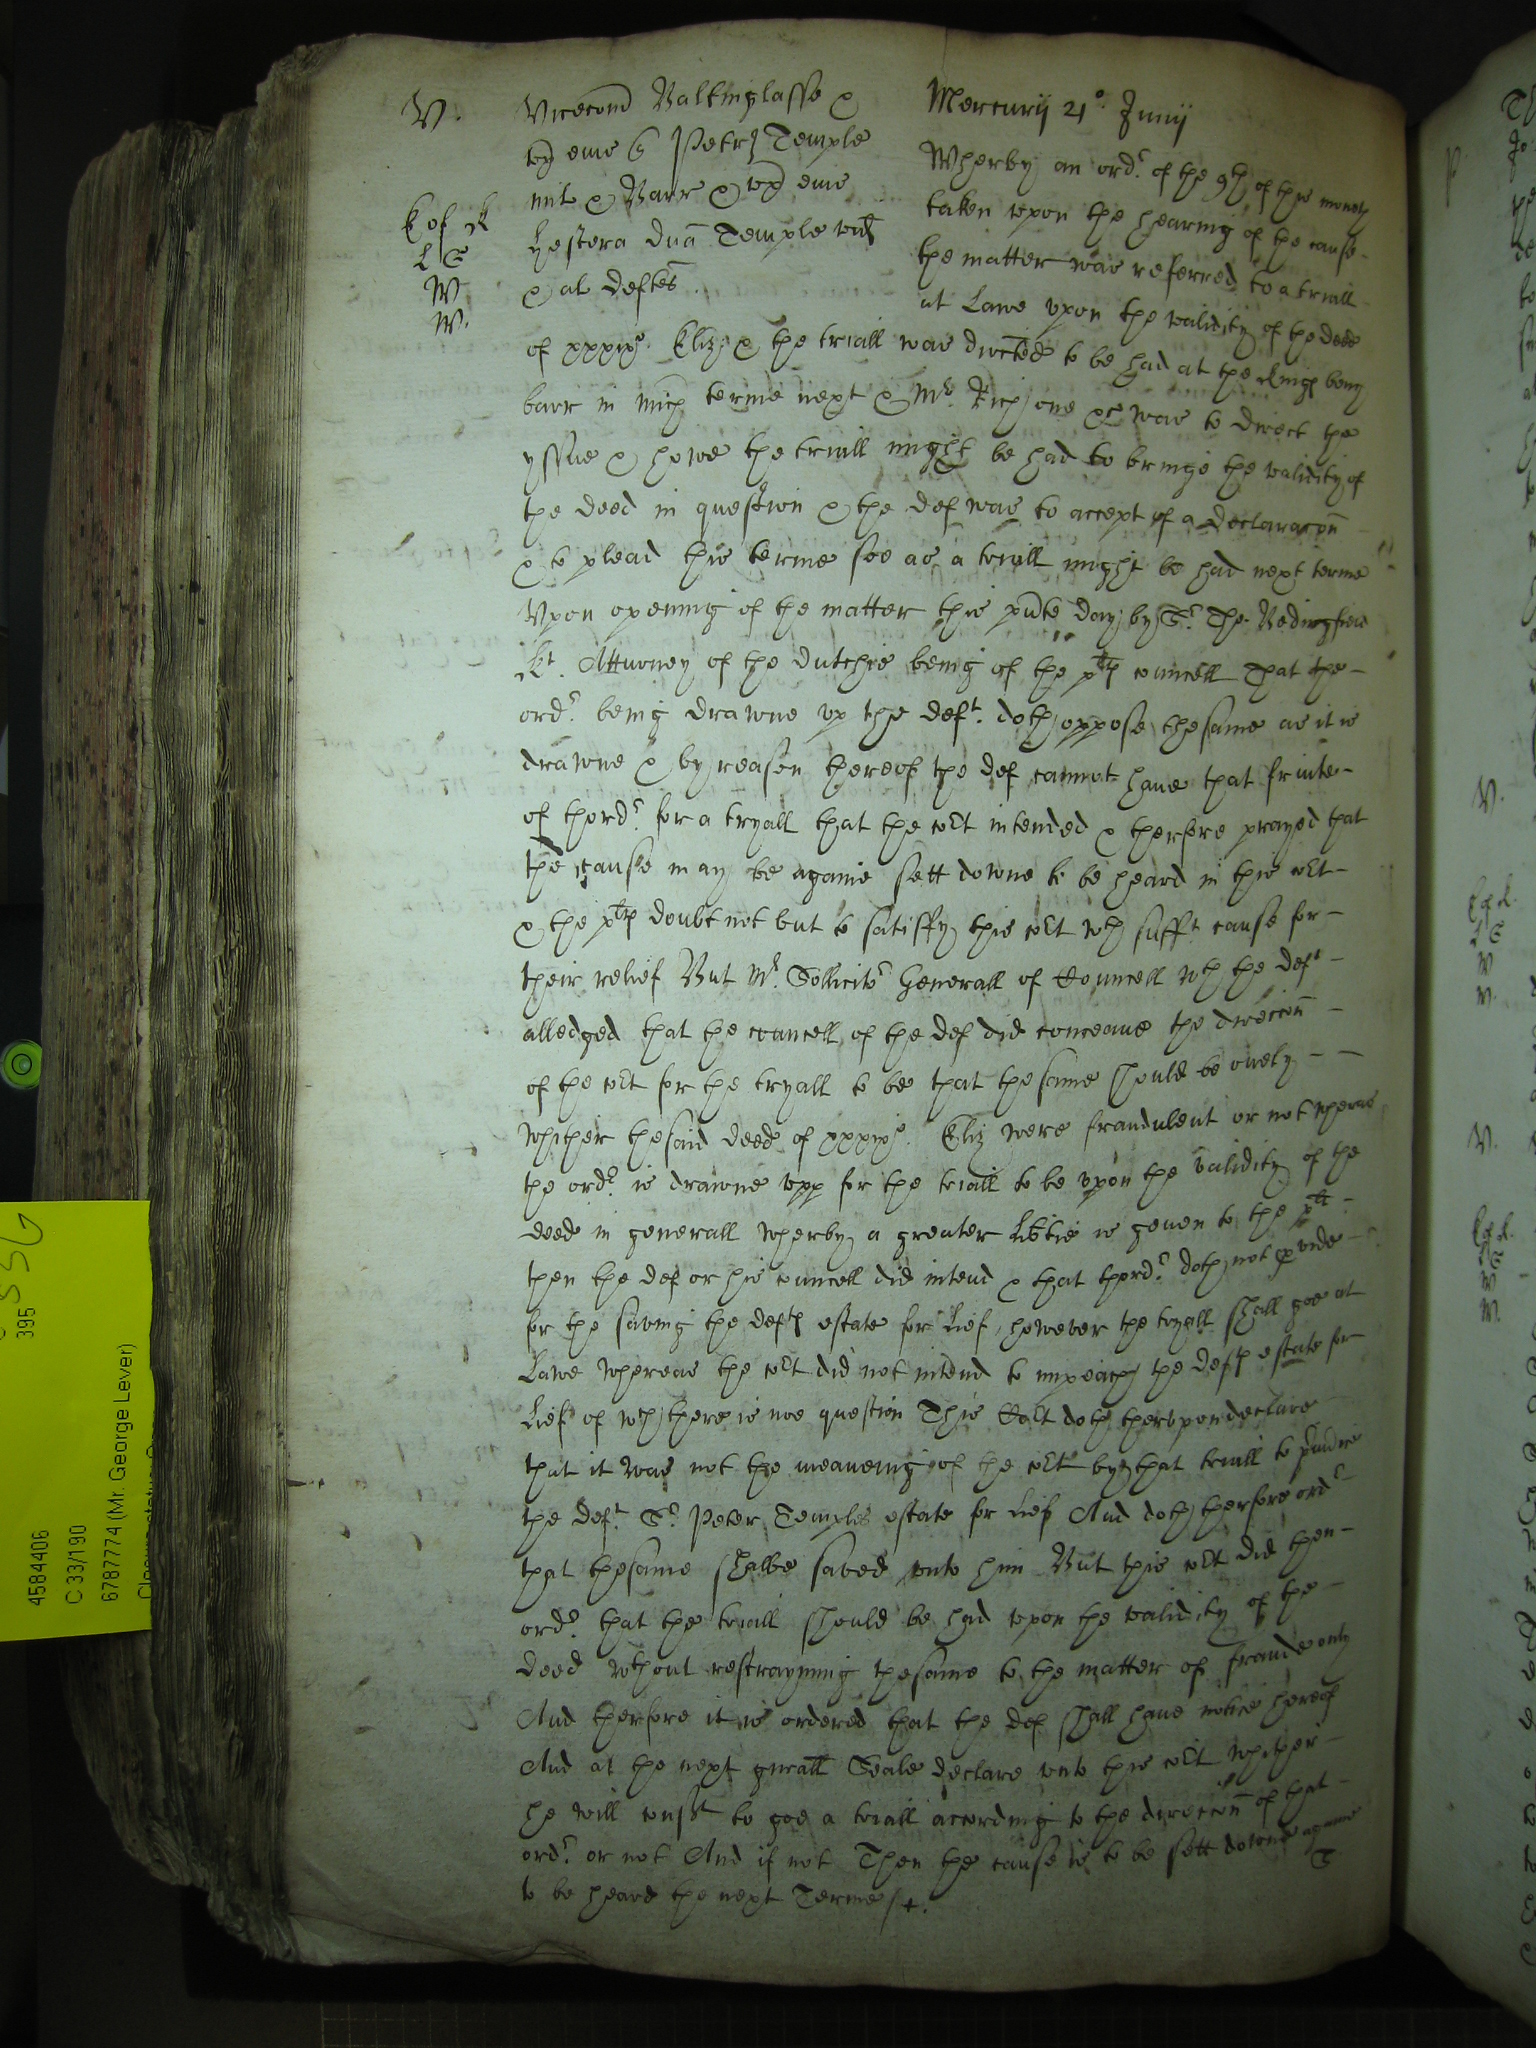 V.
Vicecom Baltinglasse &
ux eius q Petru Temple
mil & Barr & ux eius
Hestera dna Temple vid
& al deftes.
E of K
L S
W
W.
Mercurij 21° Junij
Wherby an ord^r. of the 9th of this moneth
taken upon the hearing of the cause
the matter was referred to a triall
at Lawe vpon the validity of the deed
of xxxix° Eliz & the triall was directed to be had at the Kings benp
barr in Mich terme next & M^r. Rich one was to direct the
yssue & howe the triall might be had to bringe the validity of
the deed in question & the def was to accept of a declaracon
& to plead this terme soe as a triall might be had next terme
Vpon opening of the matter this pnte day by S^r. Tho. Bedingfeild
K^t. Atturney of the dutchie being of the pltes councell That the
ord^r. being drawne vp the def^t. doth oppose thesame as it is
drawne & by reason thereof the def cannot have that fruite
of thord^r. for a tryall that the co^rt intended & therfore prayed that
the cause may be againe sett downe to be heard in this co^rt
& the pltes doubt not but to satisfy this co^rt wth suff^t cause for
their relief But M^r. Sollicito^r Generall of Councell wth the def^t
alledged that the councell of the def did conceave the direccon
of the co^rt for the tryall to be that thesame should be onely
whither thesaid deed of xxxix°. Eliz were fraudulent or not wheras
the ord^r. is drawne upp for the triall to be vpon the validity of the
deed in generall wherby a greater libtie is geven to the plt
then the def or his councell did intend & that thord^r. doth not pvide
for the saving the deftes estate for lief, however the tryall shall goe at
Lawe whereas the co^rt did not intend to impeach the deftes estate for
lief of wch there is noe question This Co^rt doth therevpon declare
that it was not the meaneing of the co^rt by that triall to piudice
the def^t. S^r. Peter Temples estate for lief And doth therfore ord^r
that thesame shalbe saved unto him But this co^rt did then
ord^r. that the triall should be had upon the validity of the
deed wthout restrayning thesame to the matter of fraude only
And therfore it is ordered that the def shall have notice hereof
And at the next gnrall Seale declare unto this co^rt whither
he will consent to goe a triall according to the direccon of that
ord^r. or not And if not Then the cause is to be sett downe againe
to be heard the next Terme /+.
4584406
C 33/190
6787774 (Mr. George Lever)
395